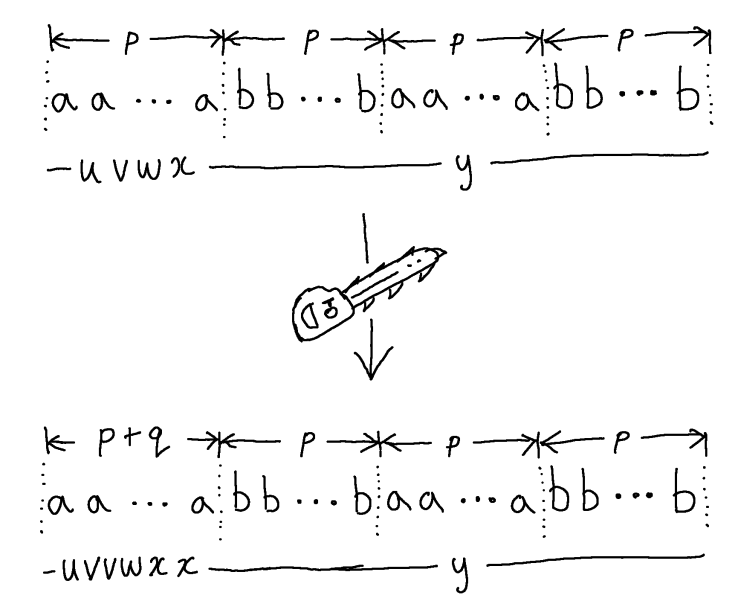 p p p p
a a ... a b b ... b a a ... a b b ... b
u v w x y
p+q p p p
a a ... a b b ... b a a ... a b b ... b
u v v w x x y